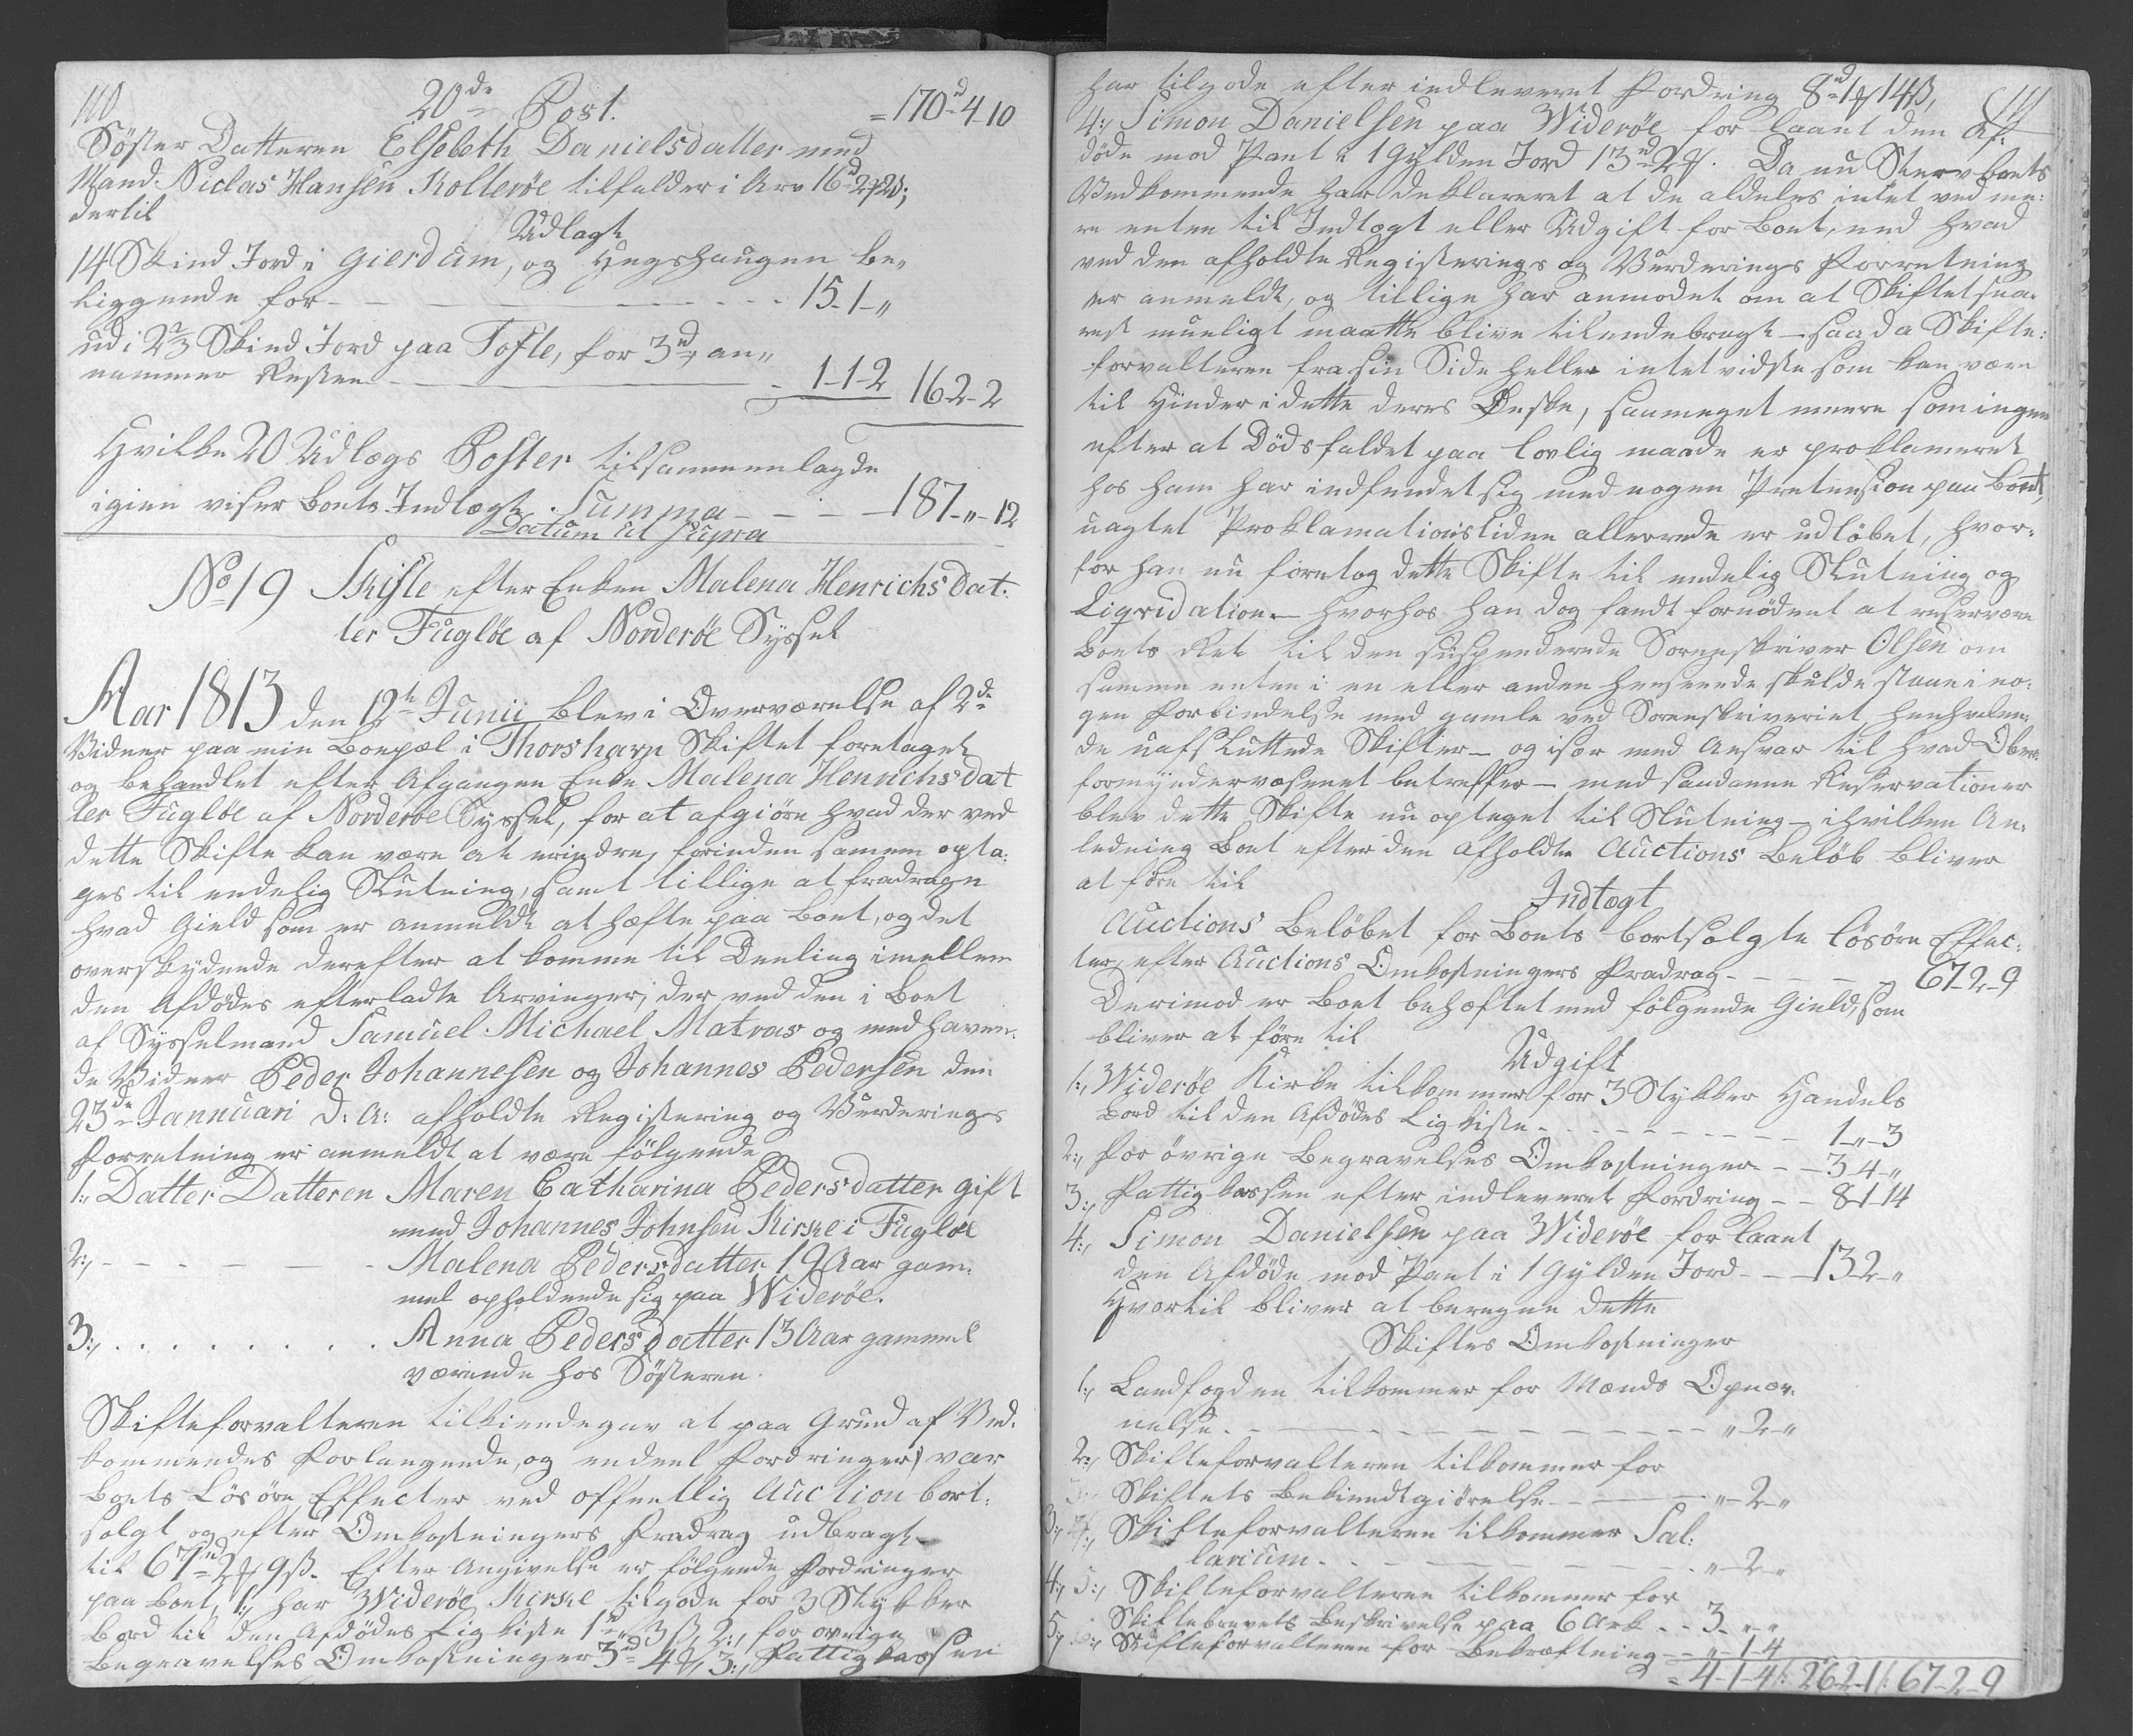 110
20de Post. = 170 d 4 10
Söster Datteren Elsebeth Danielsdatter med
Mand Niclas Hansen Kolteröe tilfalder i Arv 16 d 2 f 2 ß;
dertil
Udlagt
14 Skind Jord i Gierdum, og Hegshaugen be„
liggende for - - - - - - 15-1-„
ud i 2 2/3 Skind Jord paa Tofte, for 3 d, an„
nammer Resten - - - 1-1-2 16-2-2
Hvilke 20 Udlægs Poster tilsammenlagde
igien viser Boets Indtægt. Summa - - - 187-„-12
Datum ut Supra
No 19 Skifte efter Enken Malena Henrichs Dat:
ter Fuglöe af Norderöe Syssel
Aar 1813 den 12te Junii blev i Overværelse af 2de
Vidner paa min Boepæl i Thorshavn Skiftet foretaget
og behandlet efter Afgangen Enke Malena Henrichs dat
ter Fuglöe af Norderöe Syssel, for at afgiöre hvad der ved
dette Skifte kan være at erindre, forinden samme opta:
ges til endelig Slutning, samt tillige at fradrage
hvad Gield som er anmeldt at hæfte paa Boet, og det
overskydende derefter at komme til Deeling imellem
den Afdödes efterladte Arvinger, der ved den i Boet
af Sysselmand Samuel Michael Matras og medhaven:
de Vidner Peder Johannesen og Johannes Pedersen den
23de Jannuari d: A: afholdte Registering og Vurderings
Forretning er anmeldt at være fölgende
1:, Datter Datteren Maren Catharina Pedersdatter gift
med Johannes Johnsen Kirke i Fuglöe
2:, - - - - - - Malena Pedersdatter 19 Aar gam:
mel opholdende sig paa Wideröe.
3:, . . . . . . . . Anna Pedersdatter 13 Aar gammel
værende hos Södsteren.
Skifteforvalteren tilkiendegav at paa Grund af Ved:
kommendes Forlangende, og endeel Fordringer, var
Boets Lösöre Effecter ved offentlig Auction bort:
solgt og efter Omkostningers Fradrag udbragt
til 67 d 2 f 9 ß. Efter Angivelse er fölgende Fordringer
paa Boet, 1:, har Wideröe Kirke tilgode for 3 Stykker
Bord til den Afdödes Ligkiste 1 d „ 3 ß, 2:, for övrige
Begravelses Omkostninger 3 d 4 f, 3:, Fattigkassen
111
har tilgode efter indleveret Fordring 8 d 1 f 14 ß,
4:, Simon Danielsen paa Wideröe for laant den Af:
döde mod Pant i 1 Gylden Jord 13 d 2 f. Da nu Stervboets
Vedkommende har deklareret at de aldeles intet ved me:
re enten til Indtægt eller Udgift for Boet, end hvad
ved den afholdte Registerings og Vurderings Forretning
er anmeldt, og tillige har anmodet om at Skiftet sna:
rest mueligt maatte blive tilendebragt - saa da Skifte:
forvalteren fra sin Side heller intet vidste som kan være
til Hinder i dette deres Önske, saameget meere som ingen
efter at Dödsfaldet paa lovlig maade er proklameret
hos ham har indfundet sig med nogen Pretension paa Boet,
uagtet Proklamationstiden allerede er udlöbet, hvor:
for han nu foretog dette Skifte til endelig Slutning og
Liqvidation - hvorhos han dog fandt fornödent at reservere
Boets Ret til den suspenderede Sorenskriver Olsen om
samme enten i en eller anden Henseende skulde staae i no:
gen Forbindelse med gamle ved Sorenskriveriet henhvilen:
de uafsluttede Skifter - og især med Ansvar til hvad Over:
formyndervæsenet betreffer - med saadanne Reservationer
blev dette Skifte nu optaget til Slutning - i hvilken An:
ledning Boet efter den afholdte Auctions Belöb bliver
at före til
Indtægt
Auctions Belöbet for Boets bortsolgte Lösöre Effec:
ter, efter Auctions Omkostningers Fradrag - - - - 67-2-9
Derimod er Boet behæftet med fölgende Gield, som
bliver at före til
Udgift
1:, Wideröe Kirke tilkommer for 3 Stykker Handels
Bord til den Afdödes Ligkiste - - - - - - - 1-„-3
2:, For övrige Begravelses Omkostninger - - 3 4-„
3:, Fattigkassen efter indleveret Fordring - - 8-1-14
4:, Simon Danielsen paa Wideröe for laant
den Afdöde mod Pant i 1 Gylden Jord - - 13-2-„
Hvortil bliver at beregne dette
Skiftes Omkostninger
1:, Landfogden tilkommer for Mænds Opnæv:
nelse - - - - - - - - - - „-2-„
2:, Skifteforvalteren tilkommer for
Skiftets Bekiendtgiörelse - - - „-2-„
3:, Skifteforvalteren tilkommer Sal:
larium - - - - - - „-2-„
4:, Skifteforvalteren tilkommer for
Skiftebrevets Beskrivelse paa 6 Ark - - 3-„-„
5:, Skifteforvalteren for Bekræftning - „-1-4
= 4-1-4 /: 26-2-1 /: 67-2-9